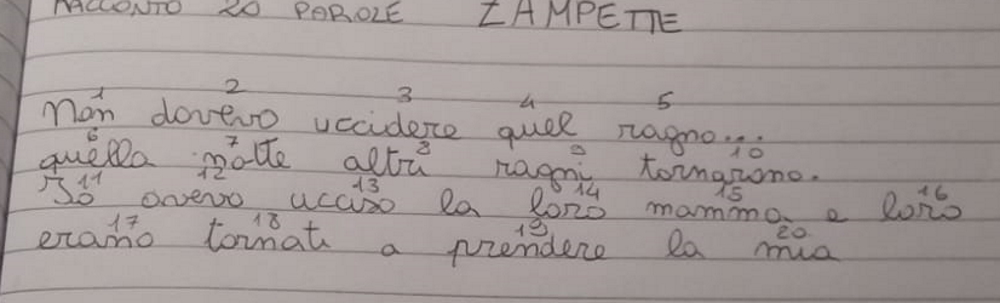 RACCONTO 20 PAROLE ZAMPETTE
1 2 3 4 5
Non dovevo uccidere quel ragno...
6 7 8 9 10
quella notte altri ragni tornarono.
11 12 13 14 15 16
Io avevo ucciso la loro mamma e loro
17 18 19 20
erano tornati a prendere la mia